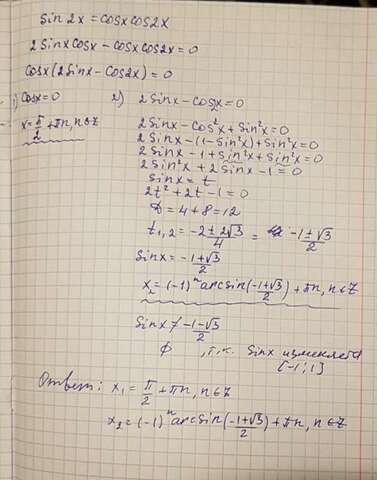 sin 2x = cosx cos2x
2 sinx cosx – cosx cos2x = 0
cosx (2 sinx – cos2x) = 0
1) cosx = 0 2) 2 sinx – cos2x = 0
x = π/2 + πn, n∈Z
2 sinx – cos²x + sin²x = 0
2 sinx – (1 – sin²x) + sin²x = 0
2 sinx – 1 + sin²x + sin²x = 0
2 sin²x + 2 sinx – 1 = 0
sinx = t
2t² + 2t – 1 = 0
D = 4 + 8 = 12
t₁,₂ = (–2 ± 2√3)/4 = (–1 ± √3)/2
sinx = (–1 + √3)/2
x₂ = (–1)ⁿ arcsin((–1+√3)/2) + πn, n∈Z
sinx ≠ (–1 – √3)/2
∅ , т.к. sinx изменяется
[–1; 1]
Ответ: x₁ = π/2 + πn, n∈Z
x₂ = (–1)ⁿ arcsin((–1+√3)/2) + πn, n∈Z